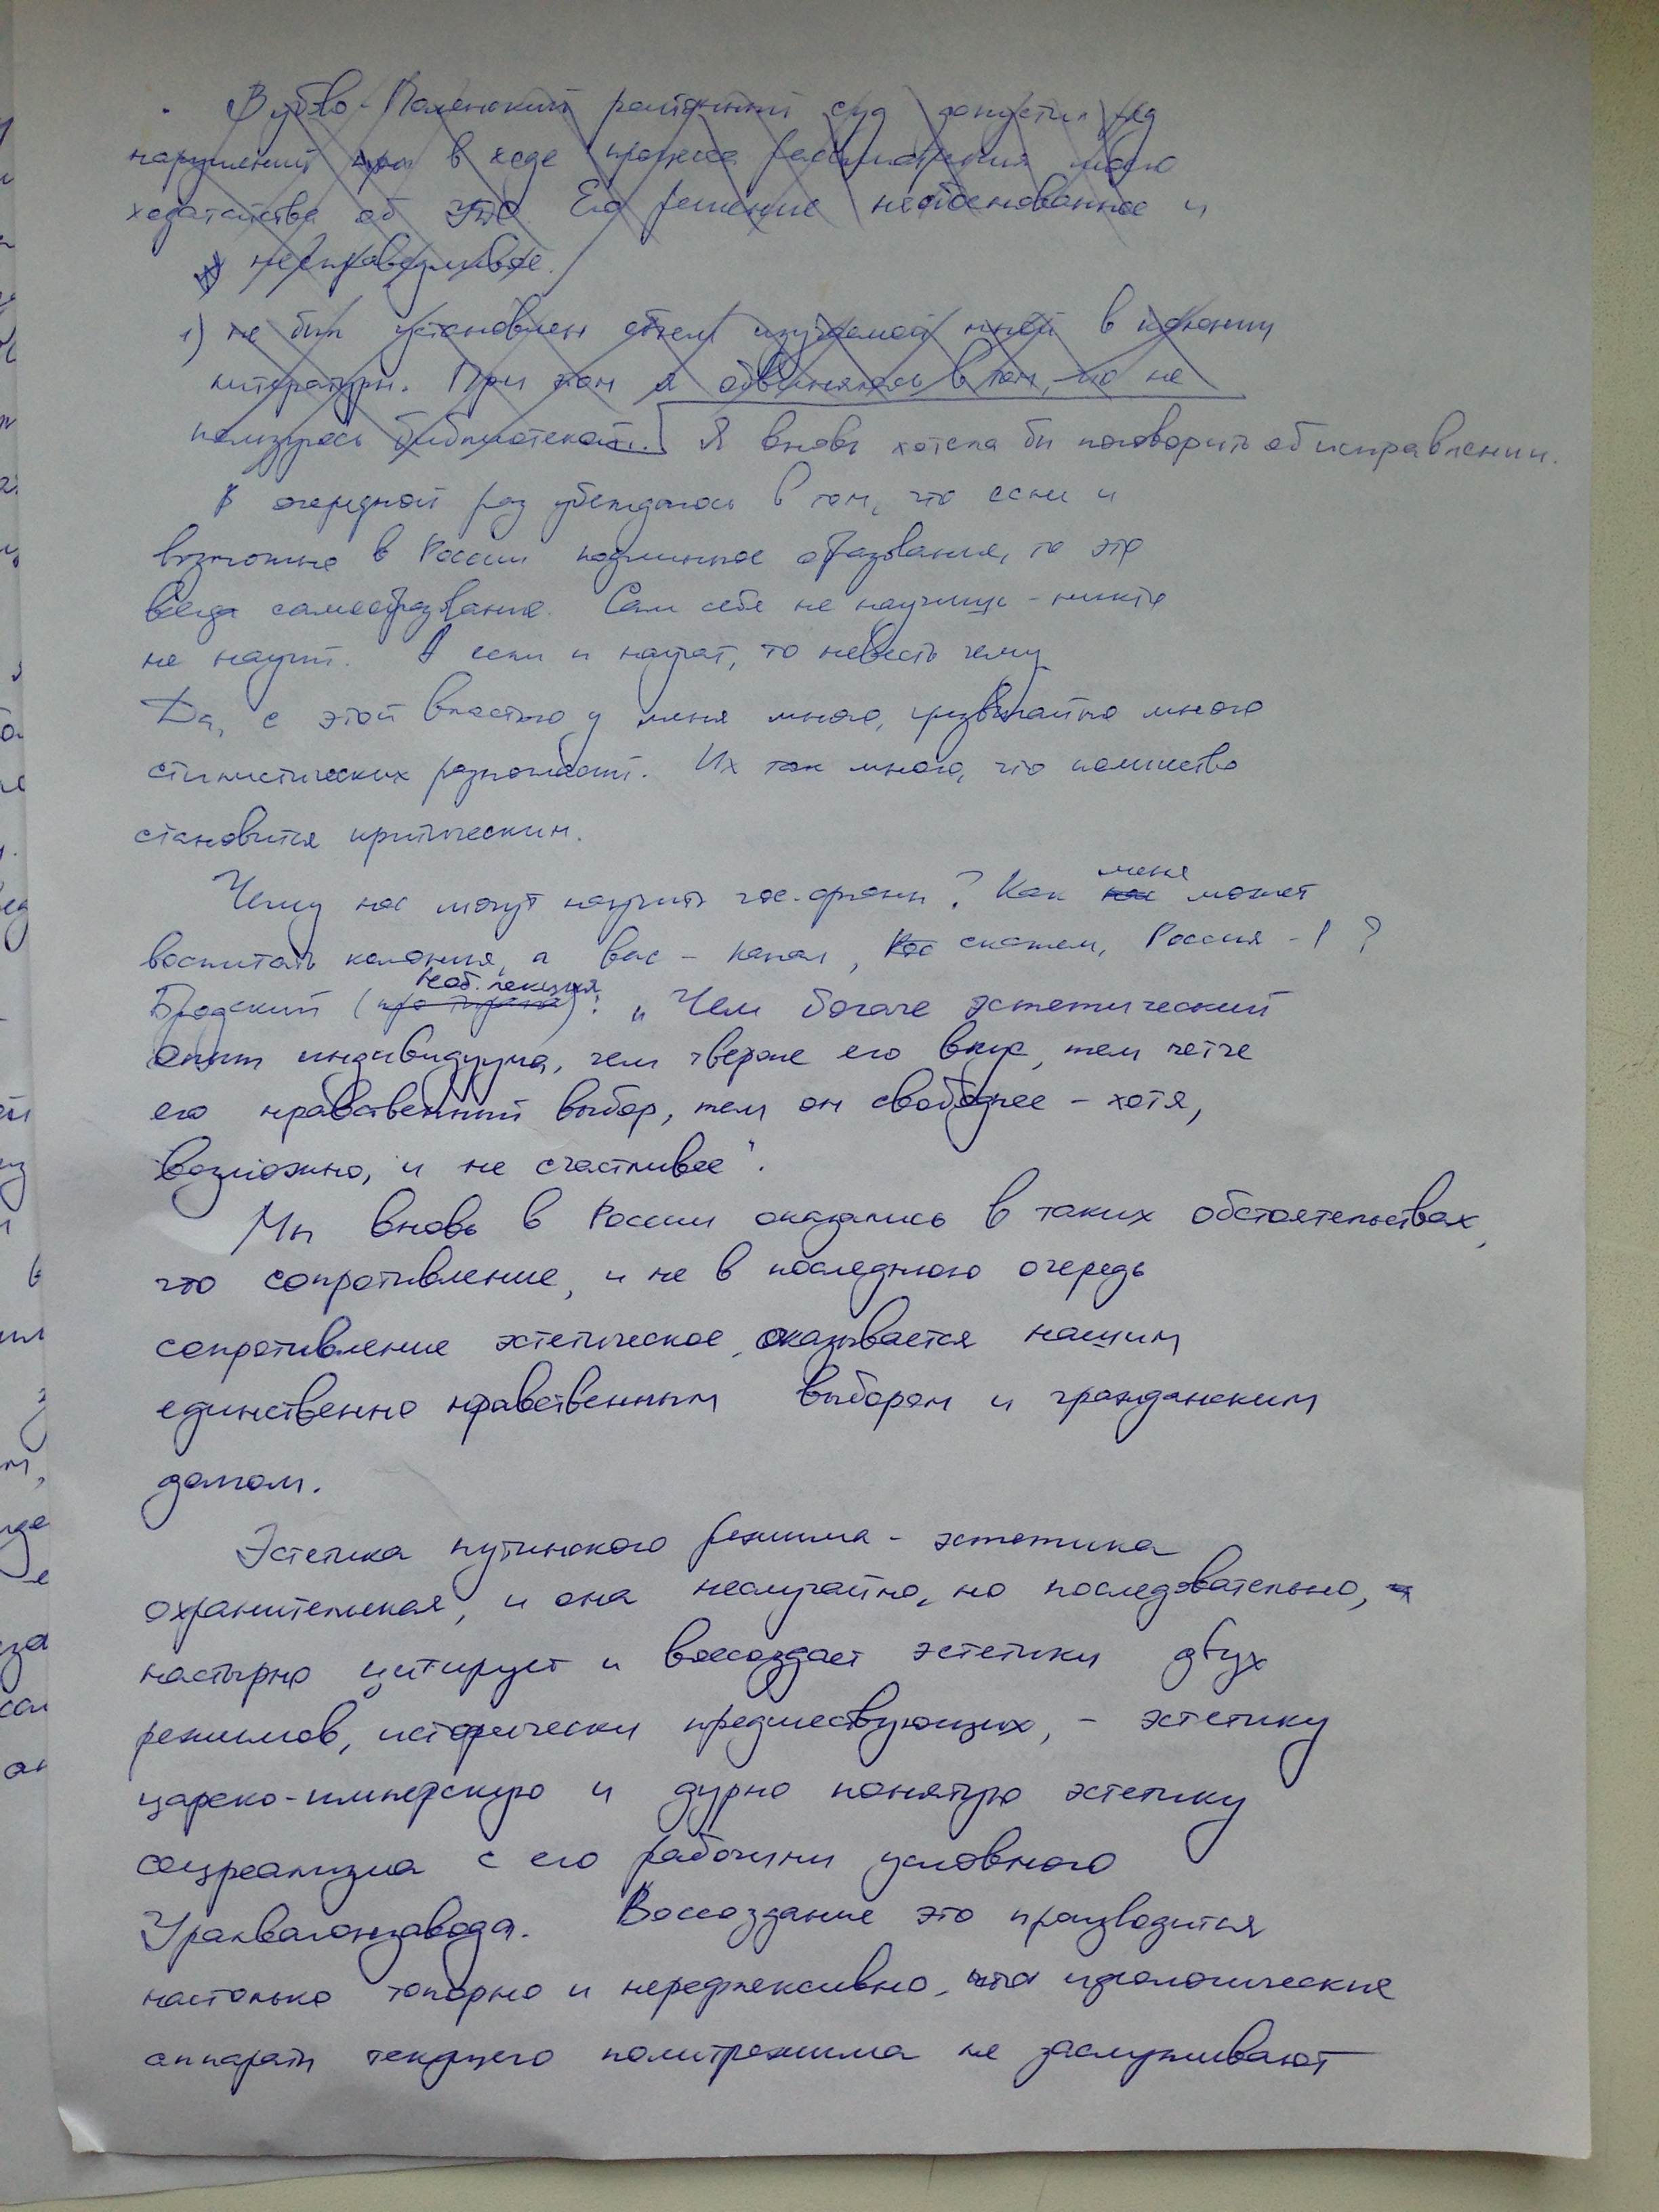 Зубово-Полянский районный суд допустил ряд
нарушений при в ходе процесса рассмотрения моего
ходатайства об УДО. Его решение необоснованное и
несправедливое.
1) не был установлен объем изучаемой мной в колонии
литературы. При этом я обвинялась в том, что не
пользуюсь библиотекой. Я вновь хотела бы поговорить об исправлении.
В очередной раз убеждаюсь в том, что если и
возможно в России подлинное образование, то это
всегда самообразование. Сам себя не научишь – никто
не научит. А если и научат, то невесть чему
Да, с этой властью у меня много, чрезвычайно много
стилистических разногласий. Их так много, что количество
становится критическим.
меня
Чему нас могут научить гос. органы? Как нас может
воспитать колония, а вас – канал, скажем, Россия-1?
Ноб. лекция
Бродский (): „Чем богаче эстетический
опыт индивидуума, чем тверже его вкус, тем четче
его нравственный выбор, тем он свободнее – хотя,
возможно, и не счастливее".
Мы вновь в России оказались в таких обстоятельствах,
что сопротивление, и не в последнюю очередь
сопротивление эстетическое, оказывается нашим
единственно нравственным выбором и гражданским
долгом.
Эстетика путинского режима – эстетика
охранительская, и она неслучайно, но последовательно,
настырно цитирует и воссоздает эстетики двух
режимов, исторически предшествующих, – эстетику
царско-имперскую и дурно понятую эстетику
соцреализма с его рабочими условного
Уралвагонзавода. Воссоздание это производится
настолько топорно и нерефлексивно, что идеологические
аппараты текущего политрежима не заслуживают